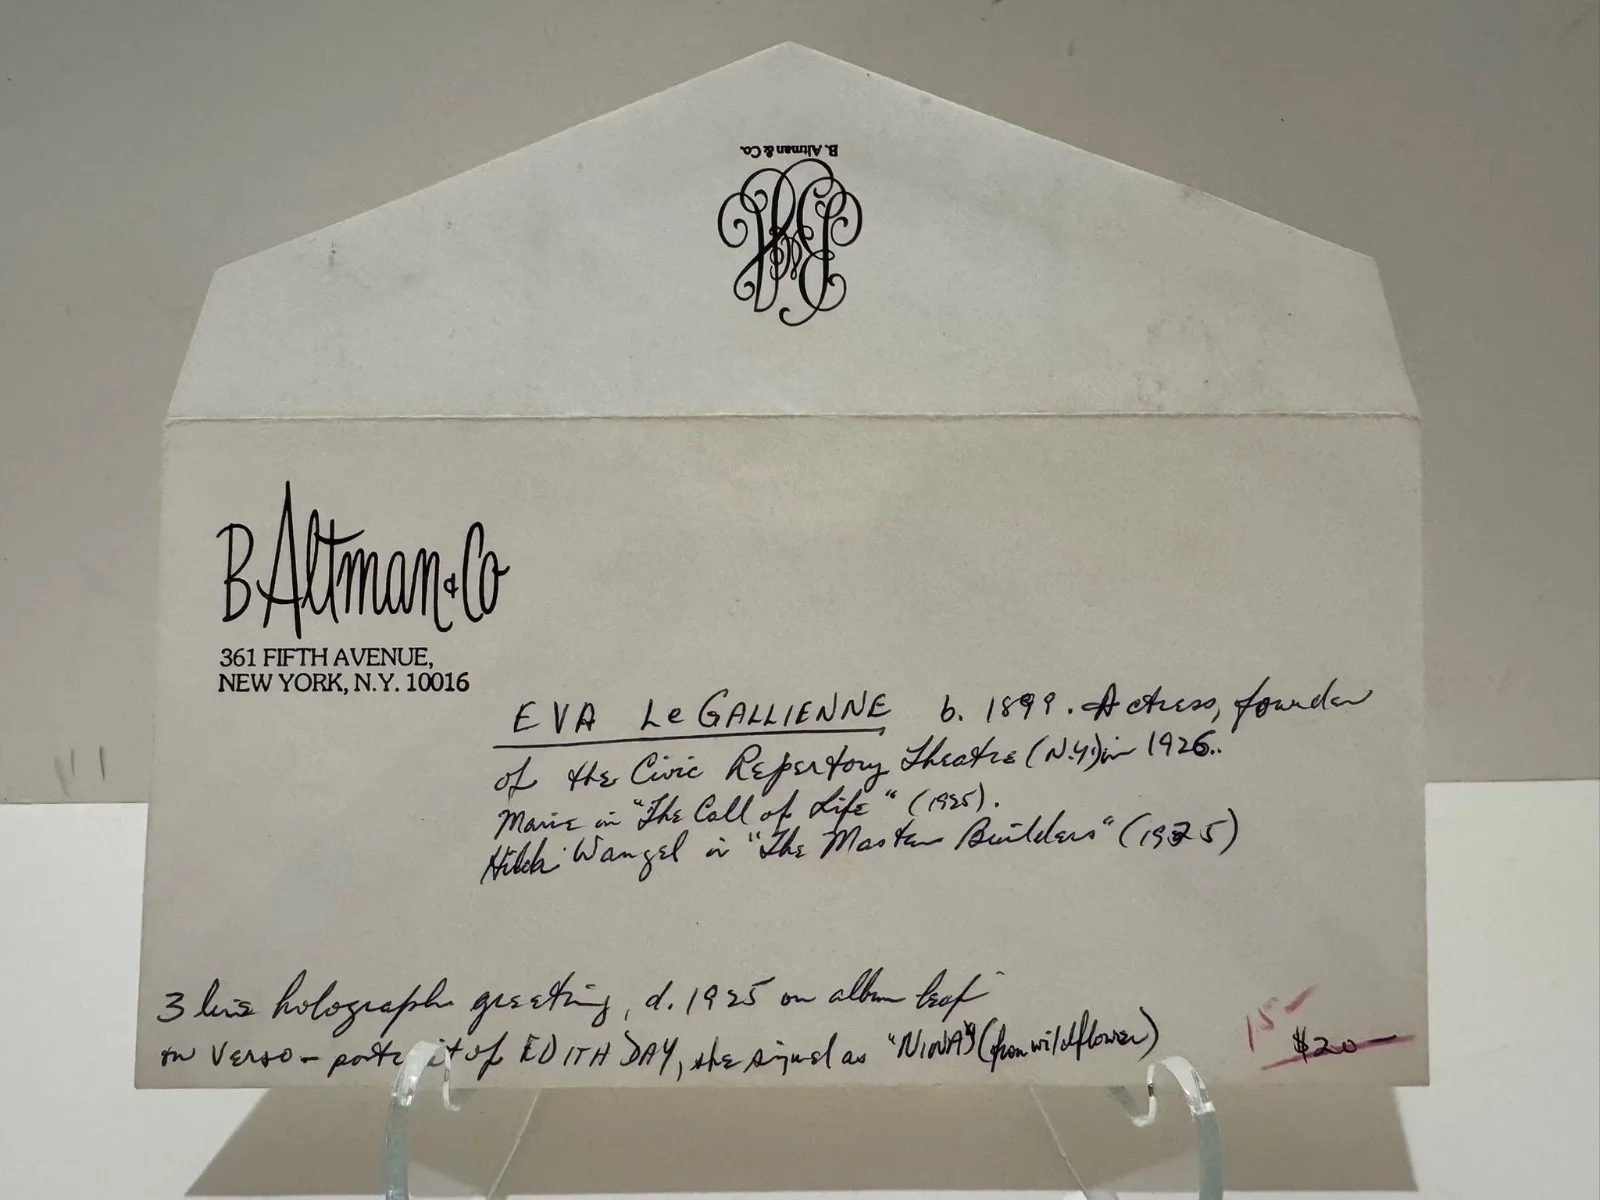 B. Altman & Co.
B Altman & Co
361 FIFTH AVENUE,
NEW YORK, N.Y. 10016
EVA Le GALLIENNE b. 1899. Actress, founder
of the Civic Repertory Theatre (N.Y.) in 1926..
Marie in "The Call of Life" (1925).
Hilda Wangel in "The Master Builders" (1925)
3 line holograph greeting, d. 1925 on album leaf
on verso - portrait of EDITH DAY, she signed as "NINA" (from wildflower)
15-
$20-